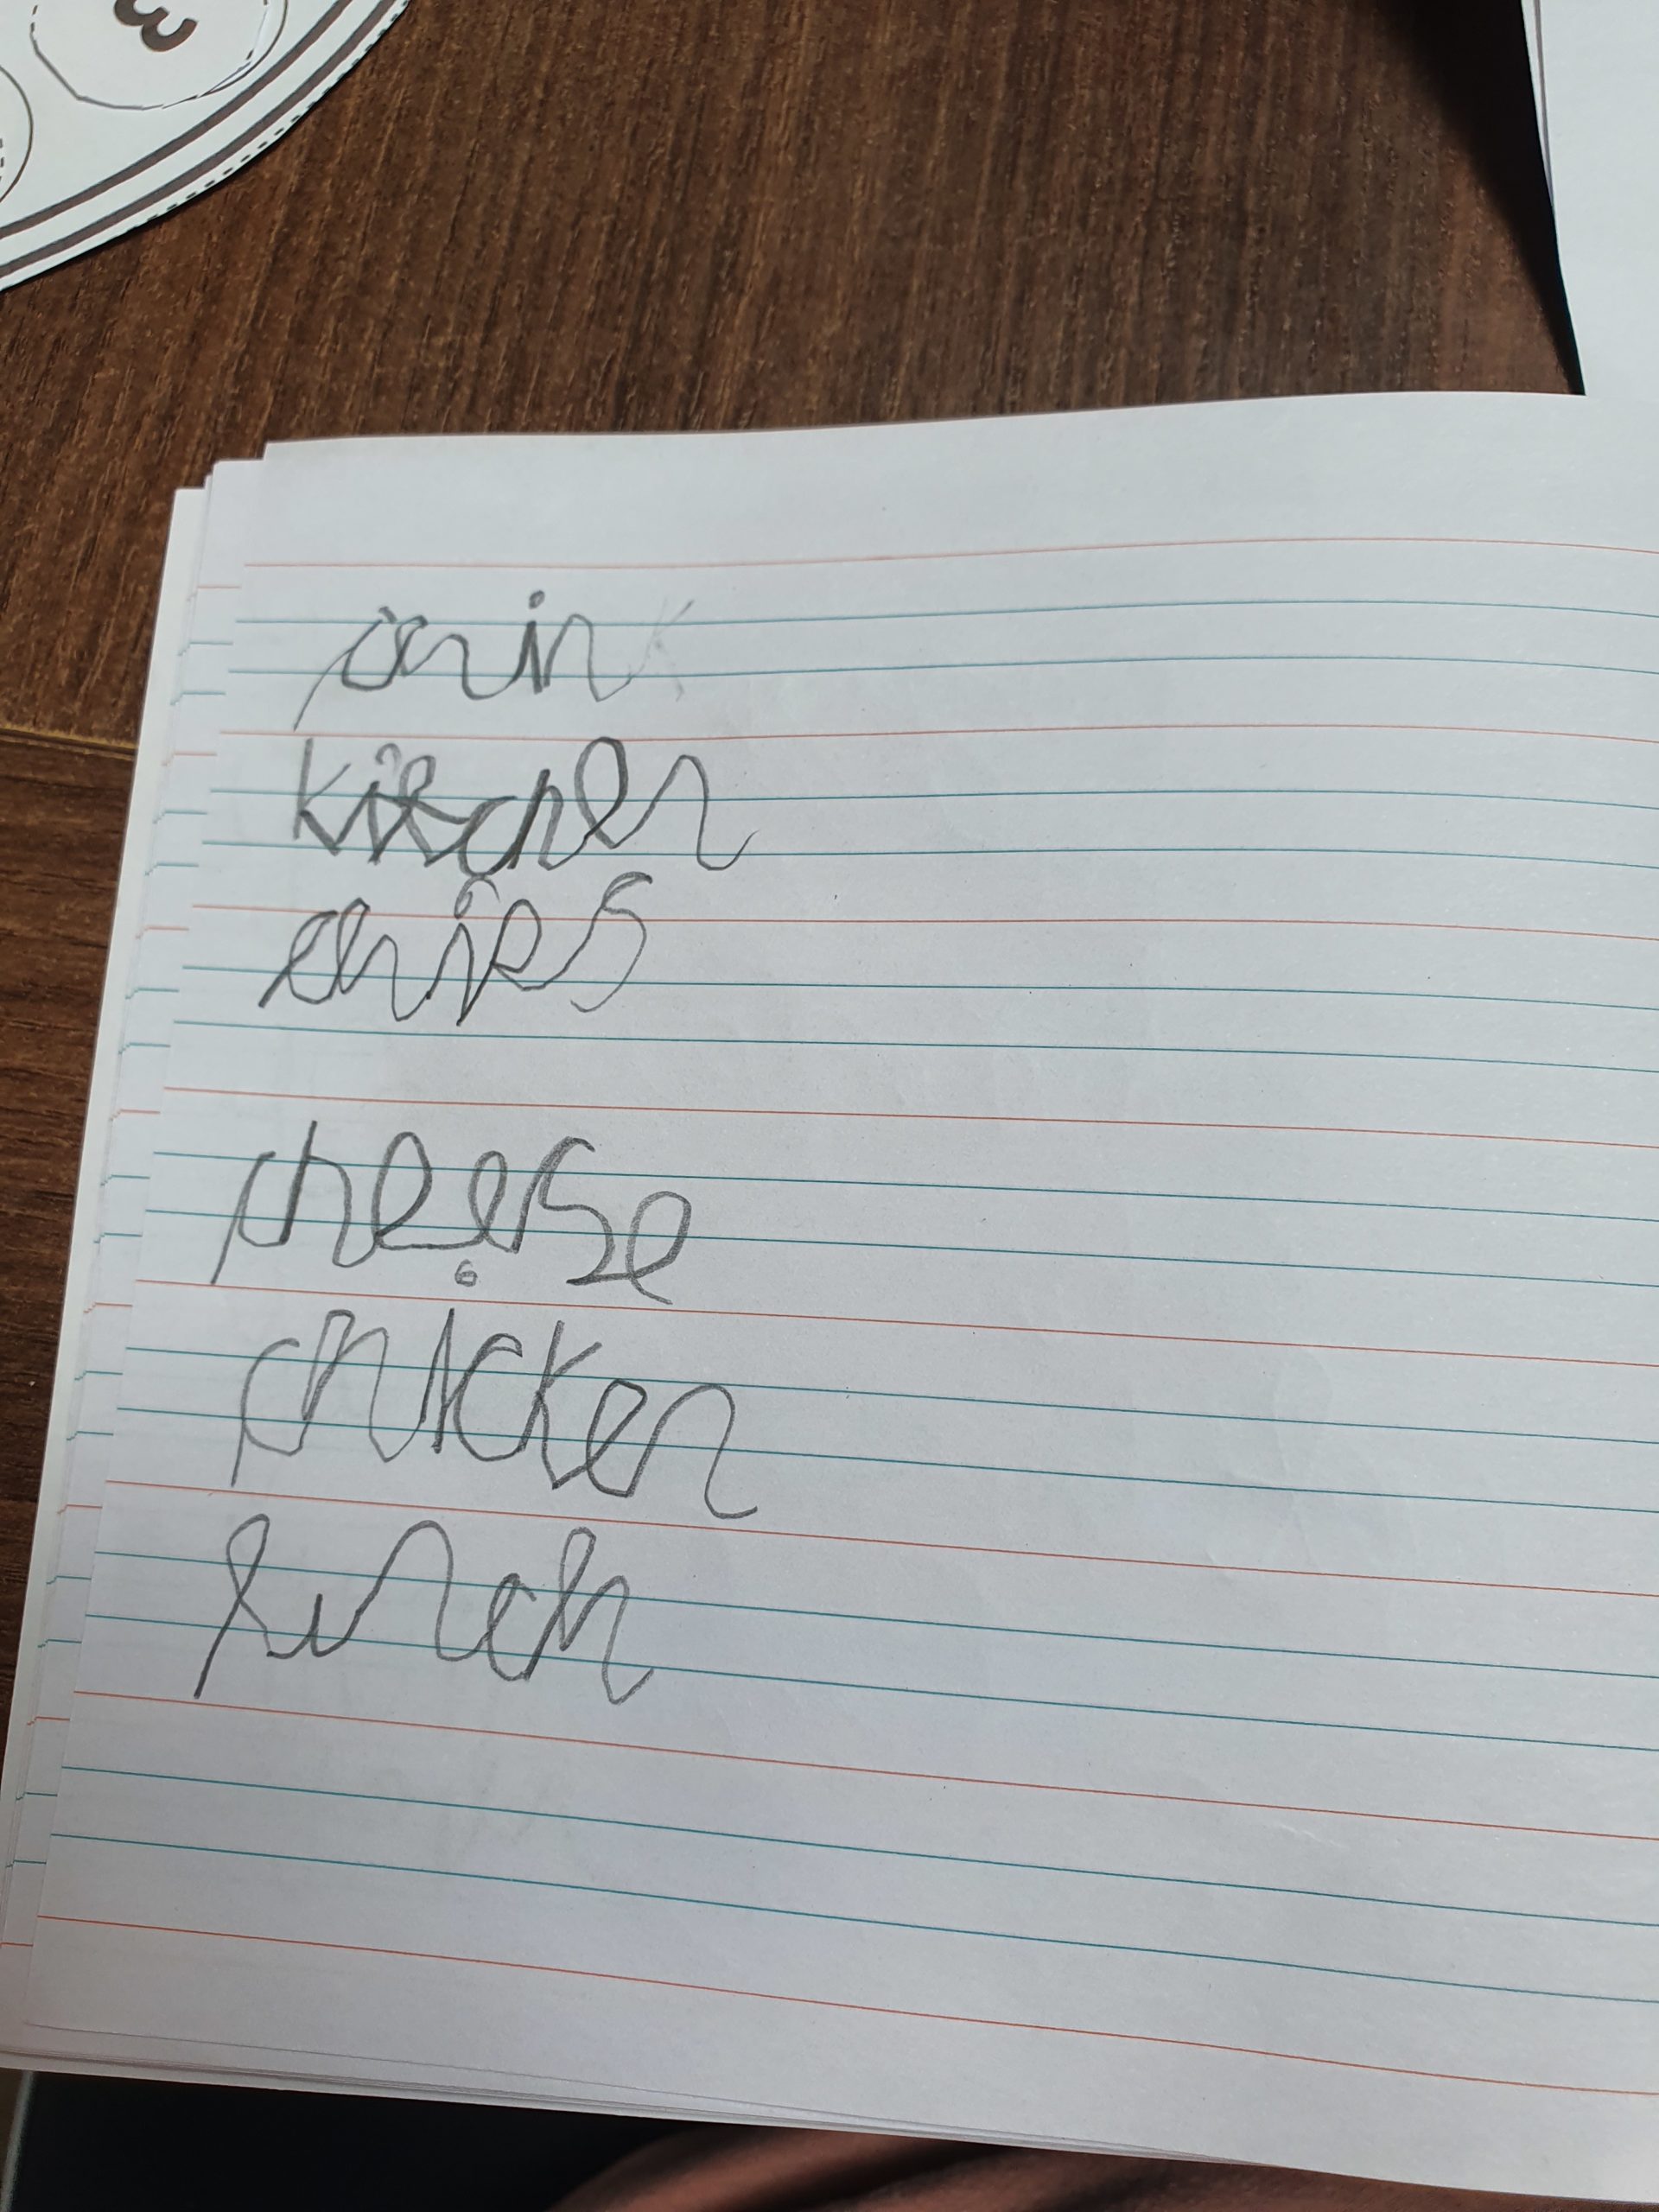 chin
kitchen
chips
cheese
chicken
lunch